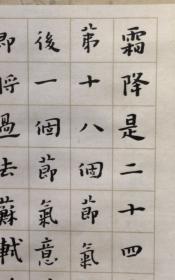 霜降是二十四
第十八個節氣
後一個節氣意
即將過去蘇軾